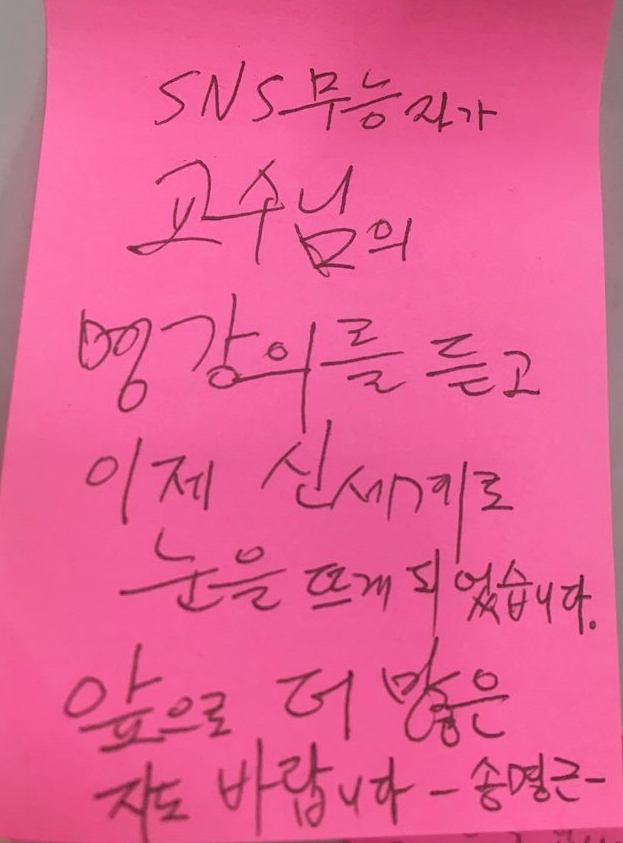 SNS무능자가
교수님의
명강의를 듣고
이제 신세계로
눈을 뜨게 되었습니다.
앞으로 더 많은
지도 바랍니다 - 송명근-